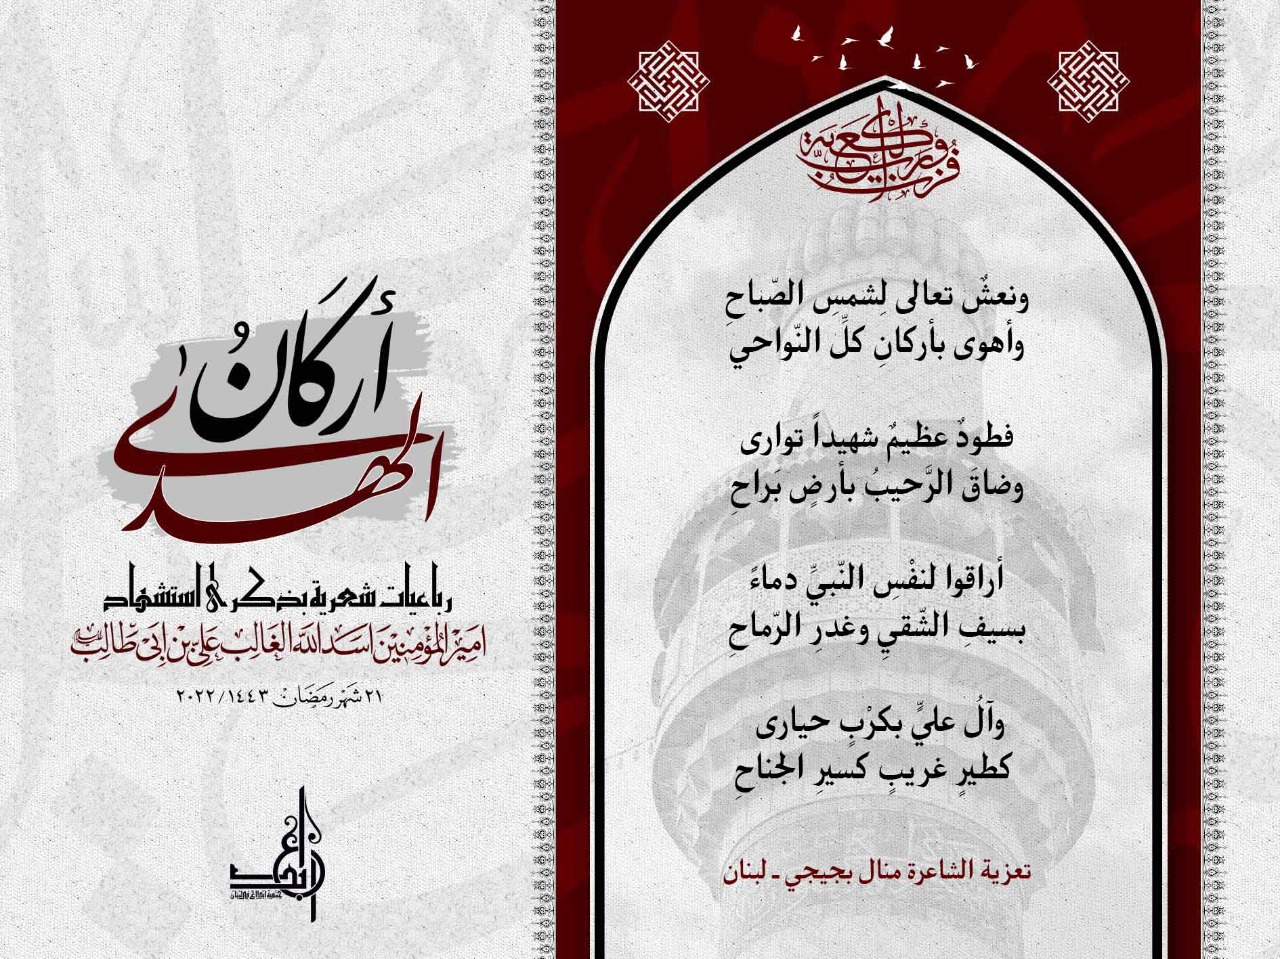 فزت ورب الكعبة
ونعشٌ تعالى لِشمسِ الصّباحِ
وأهوى بأركانِ كلِّ النّواحي
فطودٌ عظيمٌ شهيداً توارى
وضاقَ الرَّحيبُ بأرضٍ بَراحِ
أراقوا لنفْسِ النّبيِّ دماءً
بسيفِ الشّقيِ وغدرِ الرّماحِ
وآلُ عليٍّ بكرْبٍ حيارى
كطيرٍ غريبٍ كسيرِ الجناحِ
تعزية الشاعرة منال بجيجي ـ لبنان
أركانُ
الهدى
رباعيات شعرية بذكرى استشهاد
امِيْرِ المُؤْمِنِيْنَ اسَدِ اللهِ الغَالِبِ عَلِيّ بْنِ ابِيْ طَالِبْ
٢١ شَهْر رَمَضَانْ ٢٠٢٢/١٤٤٣